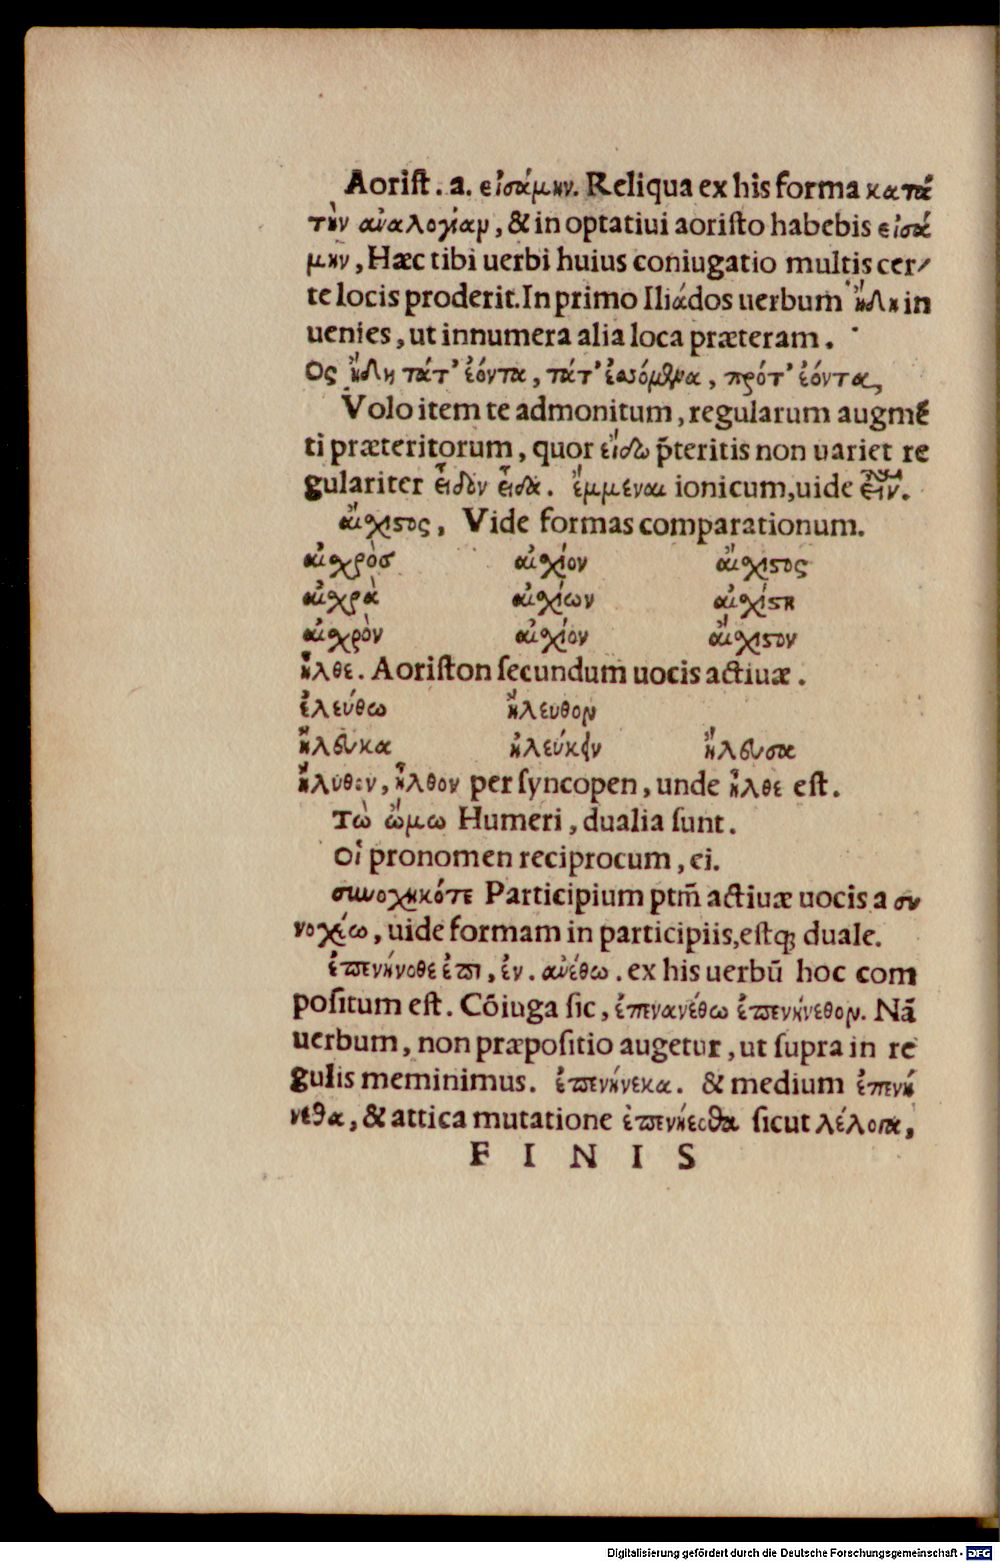 Aorist. a. εἰσάμην. Reliqua ex his forma κατὰ
τὴν ἀναλογίαν, & in optatiui aoristo habebis εἰσά
μην, Hæc tibi uerbi huius coniugatio multis cer/
te locis proderit. In primo Iliádos uerbum ἤδη in
uenies, ut innumera alia loca præteram.
Ος ἤδη τάτ' ἐόντα, τάτ' ἐσσόμενα, πρότ' ἐόντα,
Volo item te admonitum, regularum augmẽ
ti præteritorum, quor εἴδω p̃teritis non uariet re
gulariter εἶδον εἶδα. ἔμμεναι ionicum, uide
αἴσχιστος, Vide formas comparationum.
αἰσχρὸσ αἰσχίον αἴσχιστος
αἰσχρὰ αἰσχίων αἰσχίστη
αἰσχρὸν αἰσχίον αἴσχιστον
ἦλθε. Aoriston secundum uocis actiuæ.
ἐλεύθω ἤλευθον
ἤλευκα ἠλεύκειν ἤλευσα
ἤλυθον, ἦλθον per syncopen, unde ἦλθε est.
Τὼ ὤμω Humeri, dualia sunt.
Οἱ pronomen reciprocum, ei.
συνοχηκότε Participium ptm̃ actiuæ uocis a συ
νοχέω, uide formam in participiis, estq; duale.
ἐπενήνοθε ἐπι, ἐν. ἀνέθω. ex his uerbũ hoc com
positum est. Cõiuga sic, ἐπενανέθω ἐπενήνεθον. Nã
uerbum, non præpositio augetur, ut supra in re
gulis meminimus. ἐπενήνεκα. & medium ἐπενή
νεθα, & attica mutatione sicut λέλοπα,
F I N I S
Digitalisierung gefördert durch die Deutsche Forschungsgemeinschaft - DFG